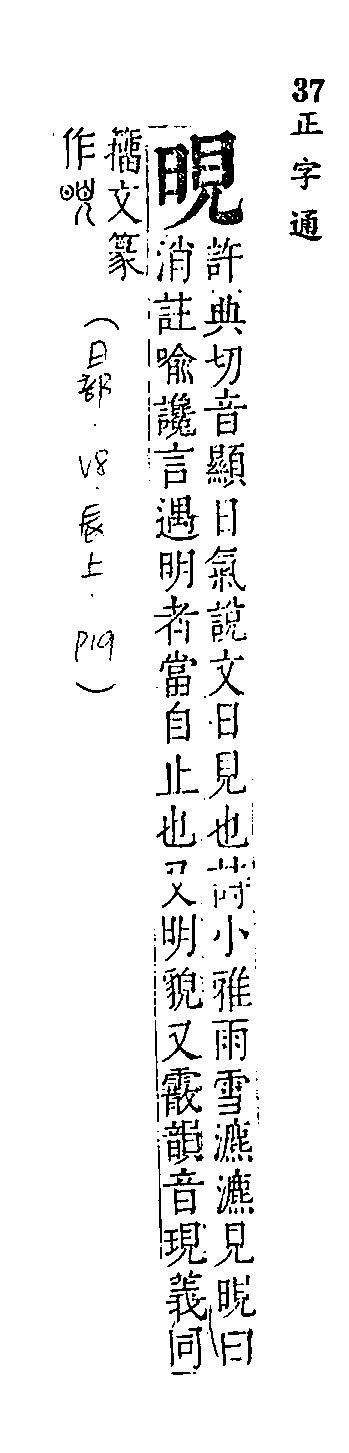 37
正字通
晛
許典切音顯日氣說文日見也詩小雅雨雪瀌瀌見晛曰
消註喻讒言遇明者當自止也又明貌又霰韻音現義同
籀文篆
作
(日部.V8.辰上.P19)